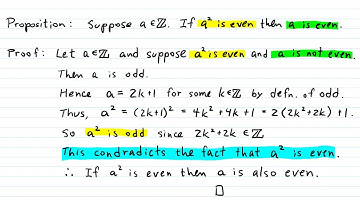 Proposition: Suppose a∈ℤ. If a² is even then a is even.
Proof: Let a∈ℤ and suppose a² is even and a is not even.
Then a is odd.
Hence a = 2k+1 for some k∈ℤ by defn. of odd.
Thus, a² = (2k+1)² = 4k² + 4k + 1 = 2(2k²+2k) + 1.
So a² is odd since 2k²+2k ∈ ℤ
This condradicts the fact that a² is even.
∴ If a² is even then a is also even.
□